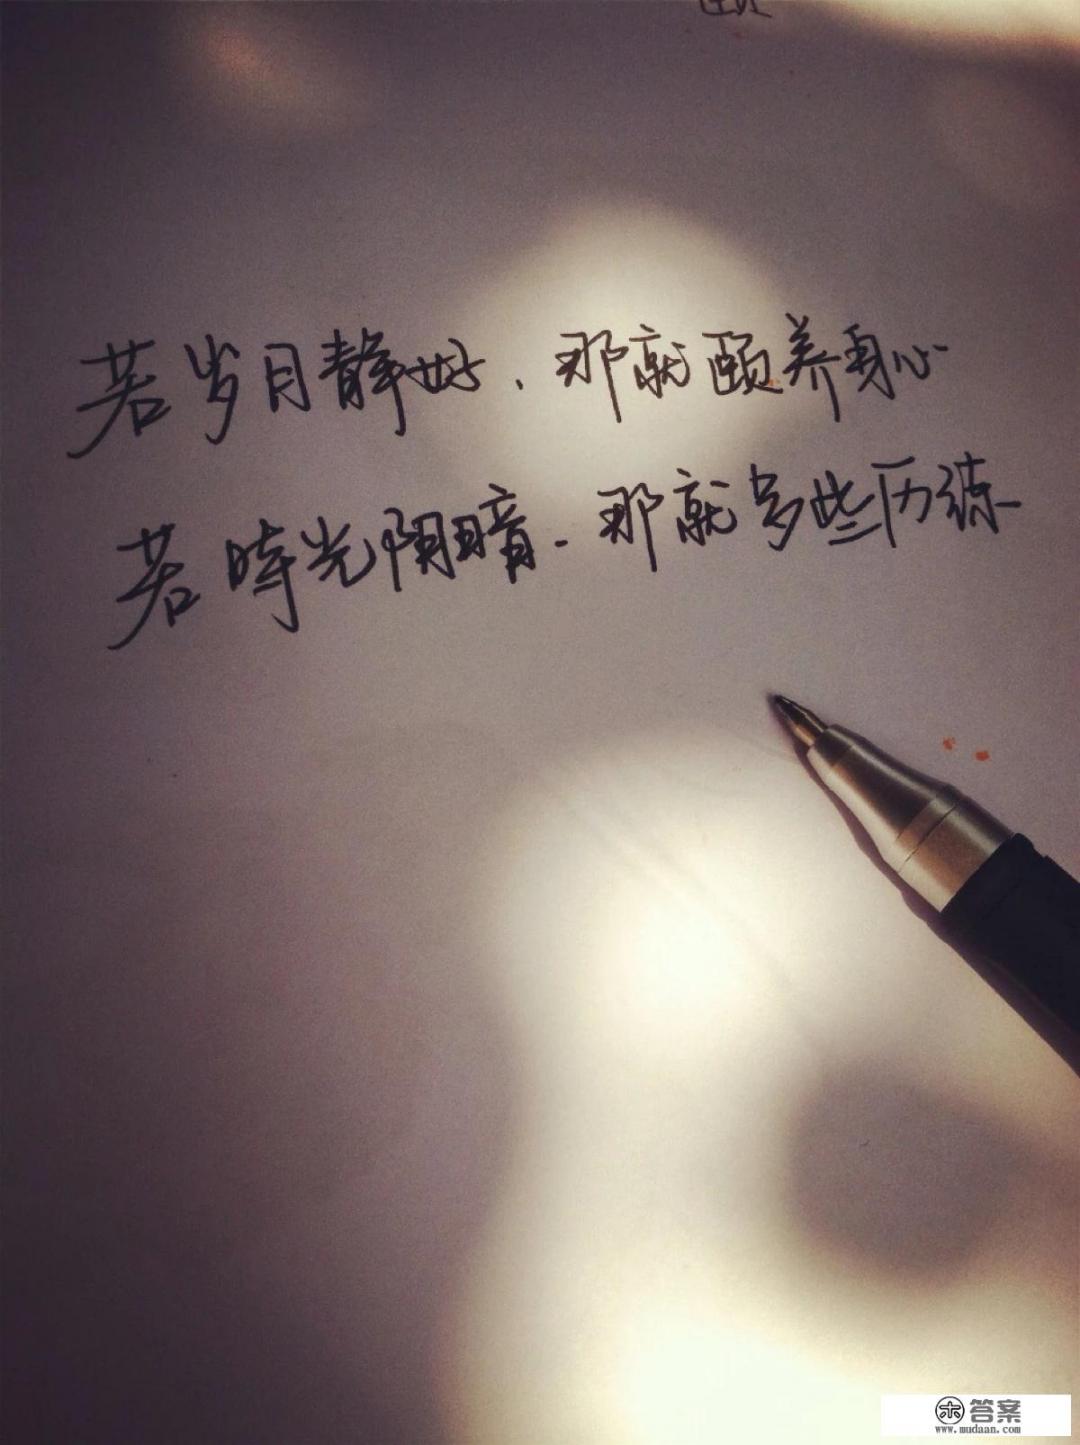 若岁月静好、那就颐养身心
若時光阴暗、那就多些历练
木答案
www.mudaan.com